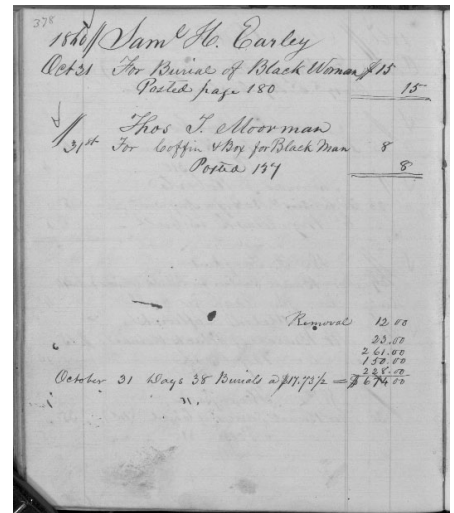 378
1860 // Saml H. Earley
Oct 31 For Burial of Black Woman $15
Posted page 180 15
Thos T. Moorman
// 31st For Coffin & Box for Black Man 8
Posted 157 8
Removal 12.00
23.00
261.00
150.00
228.00
October 31 Days 38 Burials a $17.73½ = $674.00